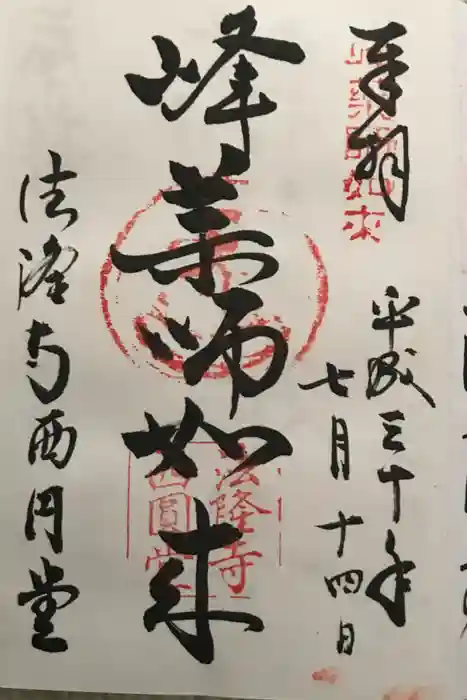 奉拝
平成三十年
七月十四日
峰薬師如来
法隆寺西円堂
峰薬師如来
法隆寺
西圓堂